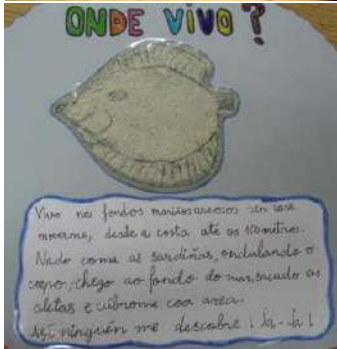 ONDE VIVO?
Vivo nos fondos mariños areosos sen case
moverme, desde a costa até os 100 metros.
Nado coma as sardiñas, ondulando o
corpo; chego ao fondo do mar, sacudo as
aletas e cúbrome coa area.
Así ninguén me descobre ¡Ja-Ja!